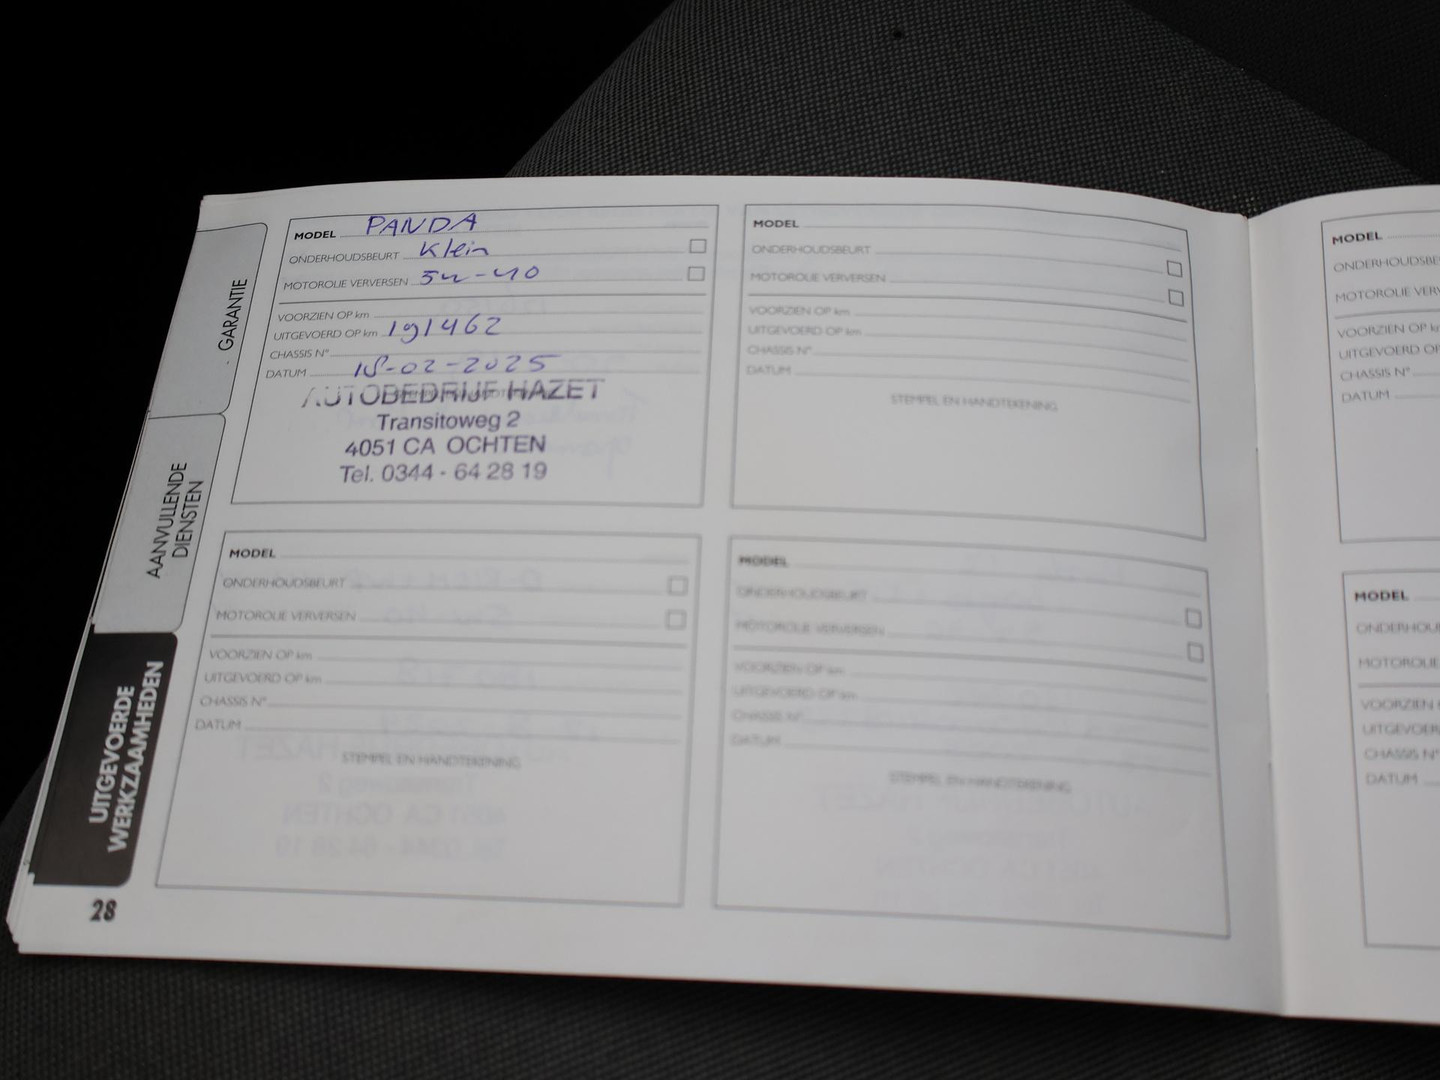 GARANTIE
AANVULLENDE
DIENSTEN
UITGEVOERDE
WERKZAAMHEDEN
28
MODEL PANDA
ONDERHOUDSBEURT Klein
MOTOROLIE VERVERSEN 5w-40
VOORZIEN OP km
UITGEVOERD OP km 191462
CHASSIS N°
DATUM 18-02-2025
AUTOBEDRIJF HAZET
Transitoweg 2
4051 CA OCHTEN
Tel. 0344 - 64 28 19
MODEL
ONDERHOUDSBEURT
MOTOROLIE VERVERSEN
VOORZIEN OP km
UITGEVOERD OP km
CHASSIS N°
DATUM
STEMPEL EN HANDTEKENING
MODEL
ONDERHOUDSBEURT
MOTOROLIE VERVERSEN
VOORZIEN OP km
UITGEVOERD OP km
CHASSIS N°
DATUM
STEMPEL EN HANDTEKENING
MODEL
ONDERHOUDSBEURT
MOTOROLIE VERVERSEN
VOORZIEN OP km
UITGEVOERD OP km
CHASSIS N°
DATUM
STEMPEL EN HANDTEKENING
MODEL
ONDERHOUDSBE
MOTOROLIE VERV
VOORZIEN OP k
UITGEVOERD OP
CHASSIS N°
DATUM
MODEL
ONDERHOU
MOTOROLIE
VOORZIEN
UITGEVOER
CHASSIS N°
DATUM